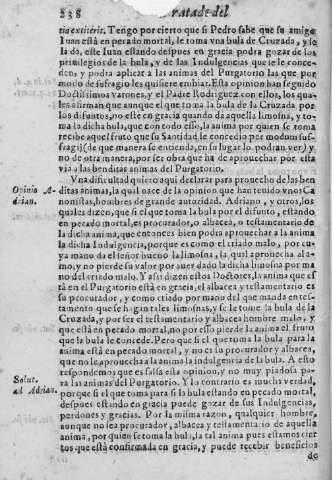 238 Tratado del
tia extiteris. Tengo por cierto que si Pedro sabe que su amigo
Iuan està en pecado mortal, le toma vna bula de Cruzada, y se
la da, este Iuan estando despues en gracia podra gozar de los
priuilegios de la bula, y de las Indulgencias que se le conce-
den, y podra aplicar a las animas del Purgatorio las que por
modo de sufragio les quisiere embiar. Esta opinion han seguido
Doctissimos varones, y el Padre Rodriguez con ellos, los qua-
les afirman que aunque el que toma la bula de la Cruzada por
los difuntos, no estè en gracia quando da aquella limosna, y to-
ma la dicha bula, que con todo esso, la anima por quien se toma
recibe aquel fruto que su Santidad le concedio per modum suf-
fragij (de que manera se entienda, en su lugar lo podran ver) y
no de otra manera, por ser obra que ha de aprouechar por esta
via a las benditas animas del Purgatorio.
Vna dificultad quiero aqui declarar para prouecho de las ben-
Opinio A- ditas animas, la qual nace de la opinion que han tenido vnos Ca
drian. nonistas, hombres de grande autoridad. Adriano, y otros, los
quales dizen, que si el que toma la bula por el difunto, estando
en pecado mortal, es procurador, o albacea, o testamentario de
la dicha anima, que entonces bien podra aprouechar a la anima
la dicha Indulgencia, porque es como el criado malo, por cu-
ya mano da el señor bueno la limosna, la qual aprouecha al a-
nima, y no pierde su valor por auer dado la dicha limosna por ma
no del criado malo. Y assi dizen estos Doctores, la anima que es
tà en el Purgatorio està en gracia, el albacea y testamentario es
su procurador, y como criado por mano del que manda en testa-
mento que se hagan tales limosnas, y se le tome la bula de la
Cruzada, y por ser el testamentario y albacea hombre malo, y
que està en pecado mortal, no por esso pierde la anima el fruto
que la bula le concede. Pero que si el que toma la bula para la
anima està en pecado mortal, y no es su procurador y albacea,
que no le aprouecha a la anima la indulgencia de la bula. A esto
respondemos que es falsa esta opinion, y no muy piadosa pa-
Solut. ra las animas del Purgatorio. Y lo contrario es mucha verdad,
ad Adrian. porque si el que toma para si la bula estando en pecado mortal,
despues estando en gracia puede gozar de sus Indulgencias,
perdones y gracias. Por la misma razon, qualquier hombre,
aunque no sea procurador, albacea, y testamentario de aquella
anima, por quien se toma la bula, la tal anima pues estamos cier
tos que està confirmada en gracia, y puede recebir beneficios
de